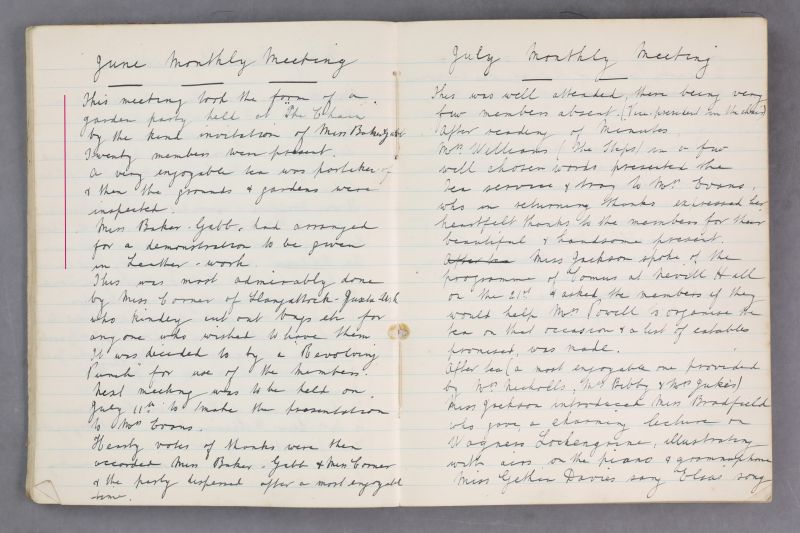 June Monthly Meeting
This meeting took the form of a
garden party held at "The Chain
by the kind invitation of Miss Baker Gabb
Twenty members were present.
A very enjoyable tea was partaken of
& then the grounds & gardens were
inspected.
Miss Baker-Gabb, had arranged
for a demonstration to be given
in Leather-work.
This was most admirably done
by Miss Corner of Llangattock-Juxta-Usk
who kindly cut out bags etc for
anyone who wished to have them.
It was decided to by a Revolving
Punch for use of the members.
Next meeting was to be held on
July 11th to make the presentation
to Mrs Evans.
Hearty votes of thanks were then
accorded Miss Baker-Gabb & Miss Corner
& the party dispersed after a most enjoyable
time.
July Monthly Meeting
This was well attended, there being very
few members absent. (Vice-president in the chair)
After reading of Minutes
Mrs Williams (The Steps) in a few
well chosen words presented the
Tea service & tray to Mrs Evans,
who in returning thanks expressed her
heartfelt thanks to the members for their
beautiful & handsome present.
After tea Miss Jackson spoke of the
programme of Comus at Nevill Hall
on the 21st & asked the members if they
would help Mrs Powell to organise the
tea on that occasion & a list of eatables
promised, was made.
After tea (a most enjoyable one provided
by Mrs Nicholls, Mrs Bibby & Mrs Jukes)
Miss Jackson introduced Miss Bradfield
who gave a charming lecture on
Wagners Lohengrine, illustrating
with airs on the piano & gramophone
Miss Gethin Davies sang Elsa's song